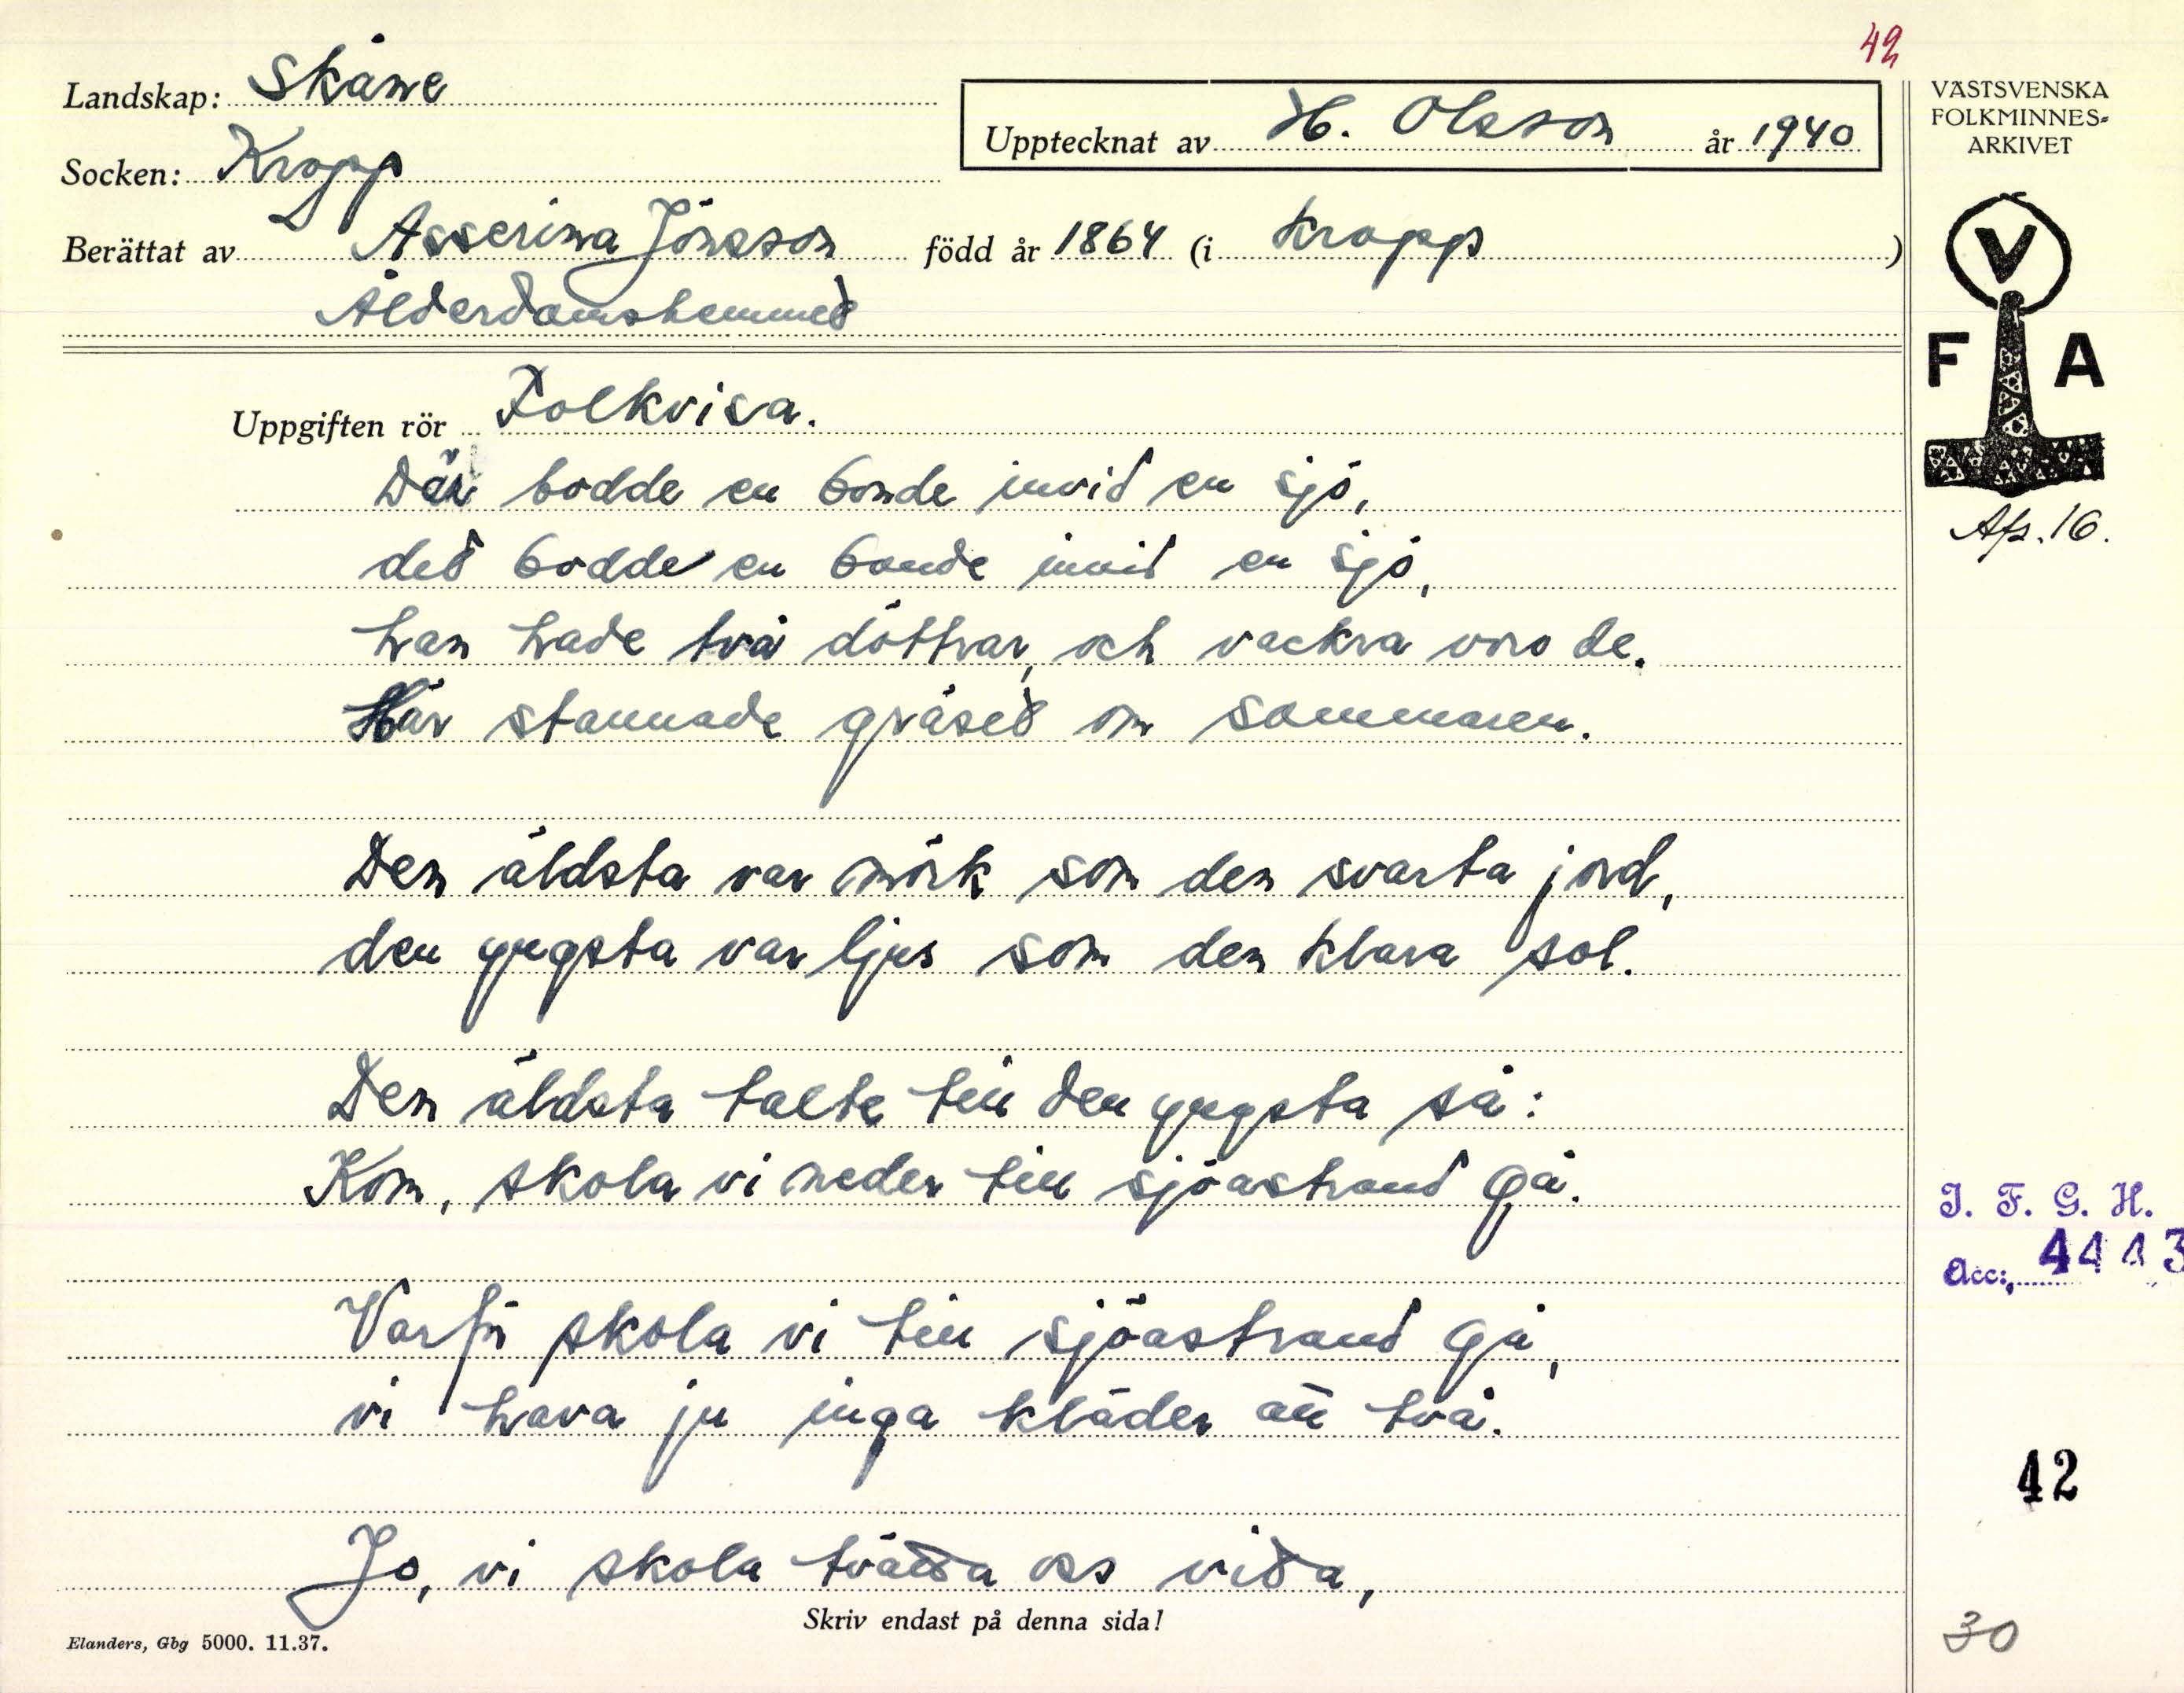 42
Landskap: Skåne
Upptecknat av H. Olsson år 1940
VÄSTSVENSKA
FOLKMINNES-
ARKIVET
Socken: Kropp
Berättat av Asserina Jönsson född år 1864 (i Kropp)
Ålderdomshemmet
V
F A
Uppgiften rör Folkvisa.
Där bodde en bonde invid en sjö,
det bodde en bonde invid en sjö,
han hade två döttrar, och vackra voro de.
Här stannade gräset om sommaren.
Den äldsta var mörk som den svarta jord,
den yngsta var ljus som den klara sol.
Den äldsta talte till den yngsta så:
Kom, skola vi neder till sjöastrand gå.
Varför skola vi till sjöastrand gå,
vi hava ju inga kläder att två.
Jo, vi skola tvätta oss vita,
Skriv endast på denna sida!
Elanders, Gbg 5000. 11.37.
I. F. G. H.
Acc: 4443
42
30